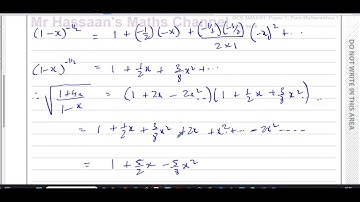 Mr Hassaan's Maths Channel
(1-x)^{-1/2} = 1 + (-1/2)(-x) + (-1/2)(-3/2)/(2×1) (-x)^2 + ...
(1-x)^{-1/2} = 1 + 1/2 x + 3/8 x^2 + ...
∴ √((1+4x)/(1-x)) = (1 + 2x - 2x^2 ..)(1 + 1/2 x + 3/8 x^2 ..) ..
= 1 + 1/2 x + 3/8 x^2 + 2x + x^2 + ... - 2x^2 .....
= 1 + 5/2 x - 5/8 x^2
DO NOT WRITE IN THIS AREA